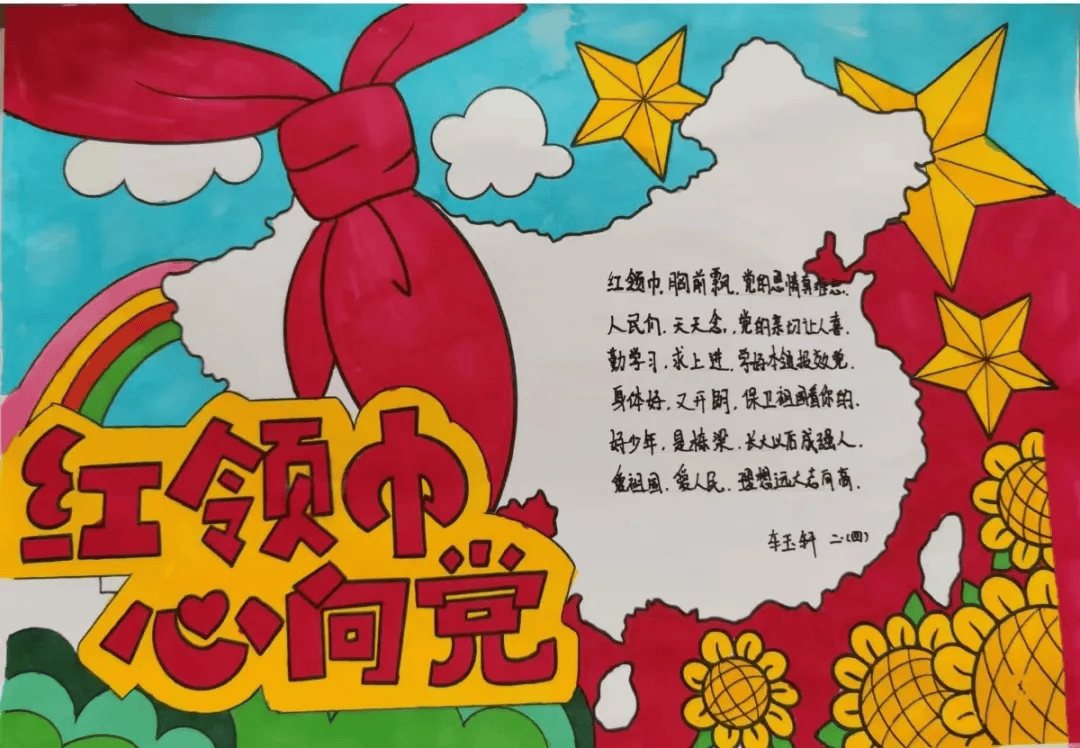 红领巾
心向党
红领巾,胸前飘,党的恩情真难忘.
人民们,天天念,党的亲切让人喜.
勤学习,求上进,学好本领报效党.
身体好,又开朗,保卫祖国看你的.
好少年,是栋梁,长大以后成强人.
爱祖国,爱人民,理想远大志向高.
车玉轩 二(四)